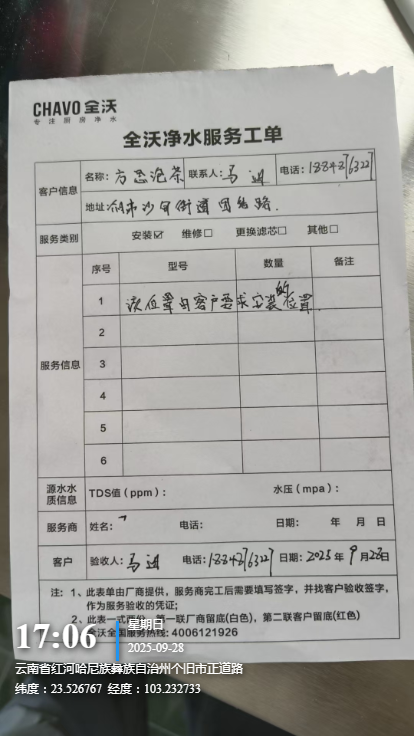 CHAVO 全沃
专注厨房净水
全沃净水服务工单
客户信息 名称: 联系人:马 电话:18842763227
地址:
服务类别 安装☑ 维修☐ 更换滤芯☐ 其他☐
服务信息 序号 型号 数量 备注
1 该位置为客户要求安装的位置.
2
3
4
5
6
源水水质信息 TDS值(ppm): 水压(mpa):
服务商 姓名: 电话: 日期: 年 月 日
客户 验收人:马 电话: 日期:2025年9月28日
注: 1、此表单由厂商提供,服务商完工后需要填写签字,并找客户验收签字,
作为服务验收的凭证;
2、此表一式 一联厂商留底(白色),第二联客户留底(红色)
沃全国服务热线: 4006121926
17:06 星期日
2025-09-28
云南省红河哈尼族彝族自治州个旧市正道路
纬度:23.526767 经度:103.232733